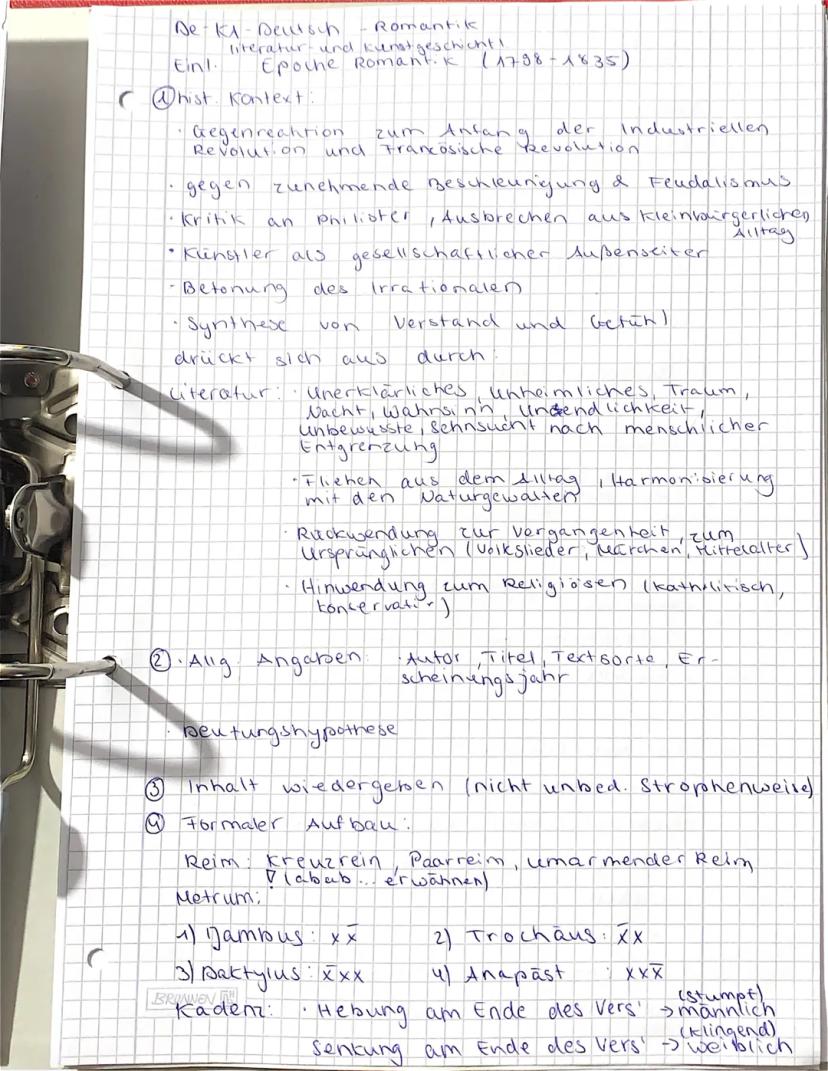 De-K1-Deutsch - Romantik
literatur-und Kunstgeschichtl
Einl. Epoche Romantik (1798-1835)
① hist. Kontext:
· Gegenreaktion zum Anfang der Industriellen
Revolution und Francösische Revolution
· gegen zunehmende Beschleunigung & Feudalismus
· Kritik an Philister, Ausbrechen aus kleinbürgerlichen
Alltag
· Künstler als gesellschaftlicher Außenseiter
- Betonung des Irrationalen
· Synthese von Verstand und Gefühl
drückt sich aus durch:
Literatur: · Unerklärliches, Unheimliches, Traum,
Nacht, Wahnsinn, Unendlichkeit,
Unbewusste, Sehnsucht nach menschlicher
Entgrenzung
· Fliehen aus dem Alltag, Harmonisierung
mit den Naturgewalten
· Rückwendung zur Vergangenheit, zum
Ursprünglichen (Volkslieder, Märchen, Mittelalter)
· Hinwendung zum Religiösen (katholitisch,
konservativ)
② · Allg. Angaben: · Autor, Titel, Textsorte, Er-
scheinungsjahr
· Deutungshypothese
③ Inhalt wiedergeben (nicht unbed. Strophenweise)
④ Formaler Aufbau:
Reim: Kreuzrein, Paarreim, umarmender Reim
! (abab... erwähnen)
Metrum:
1) Jambus: x x̄ 2) Trochäus: x̄ x
3) Daktylus: x̄xx 4) Anapäst : xxx̄
BRUNNEN
(stumpf)
Kadenz: · Hebung am Ende des Vers' → männlich
(klingend)
Senkung am Ende des Vers' → weiblich